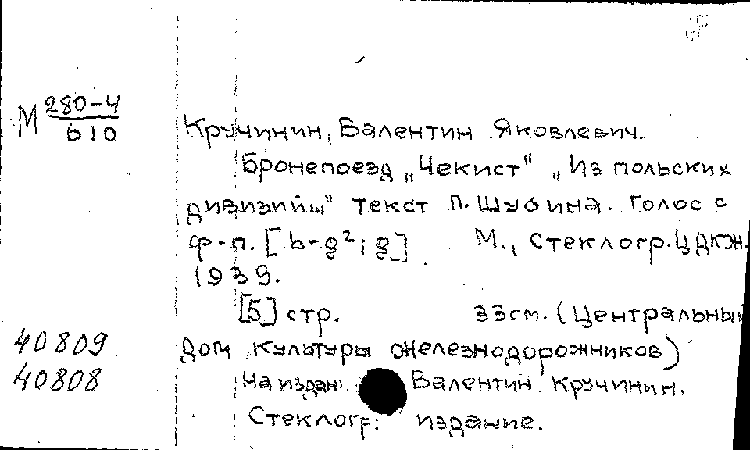 М 280-4
610
Кручинин, Валентин Яковлевич.
Бронепоезд „Чекист" „Из польских
дивизий" текст П. Шубина. Голос с
ф-п. [h-g²; g] М., Стеклогр. ЦДКЖ.
1939.
[5] стр. 33см. (Центральный
40809 Дом культуры железнодорожников)
40808 На издан. Валентин Кручинин.
Стеклогр. издание.